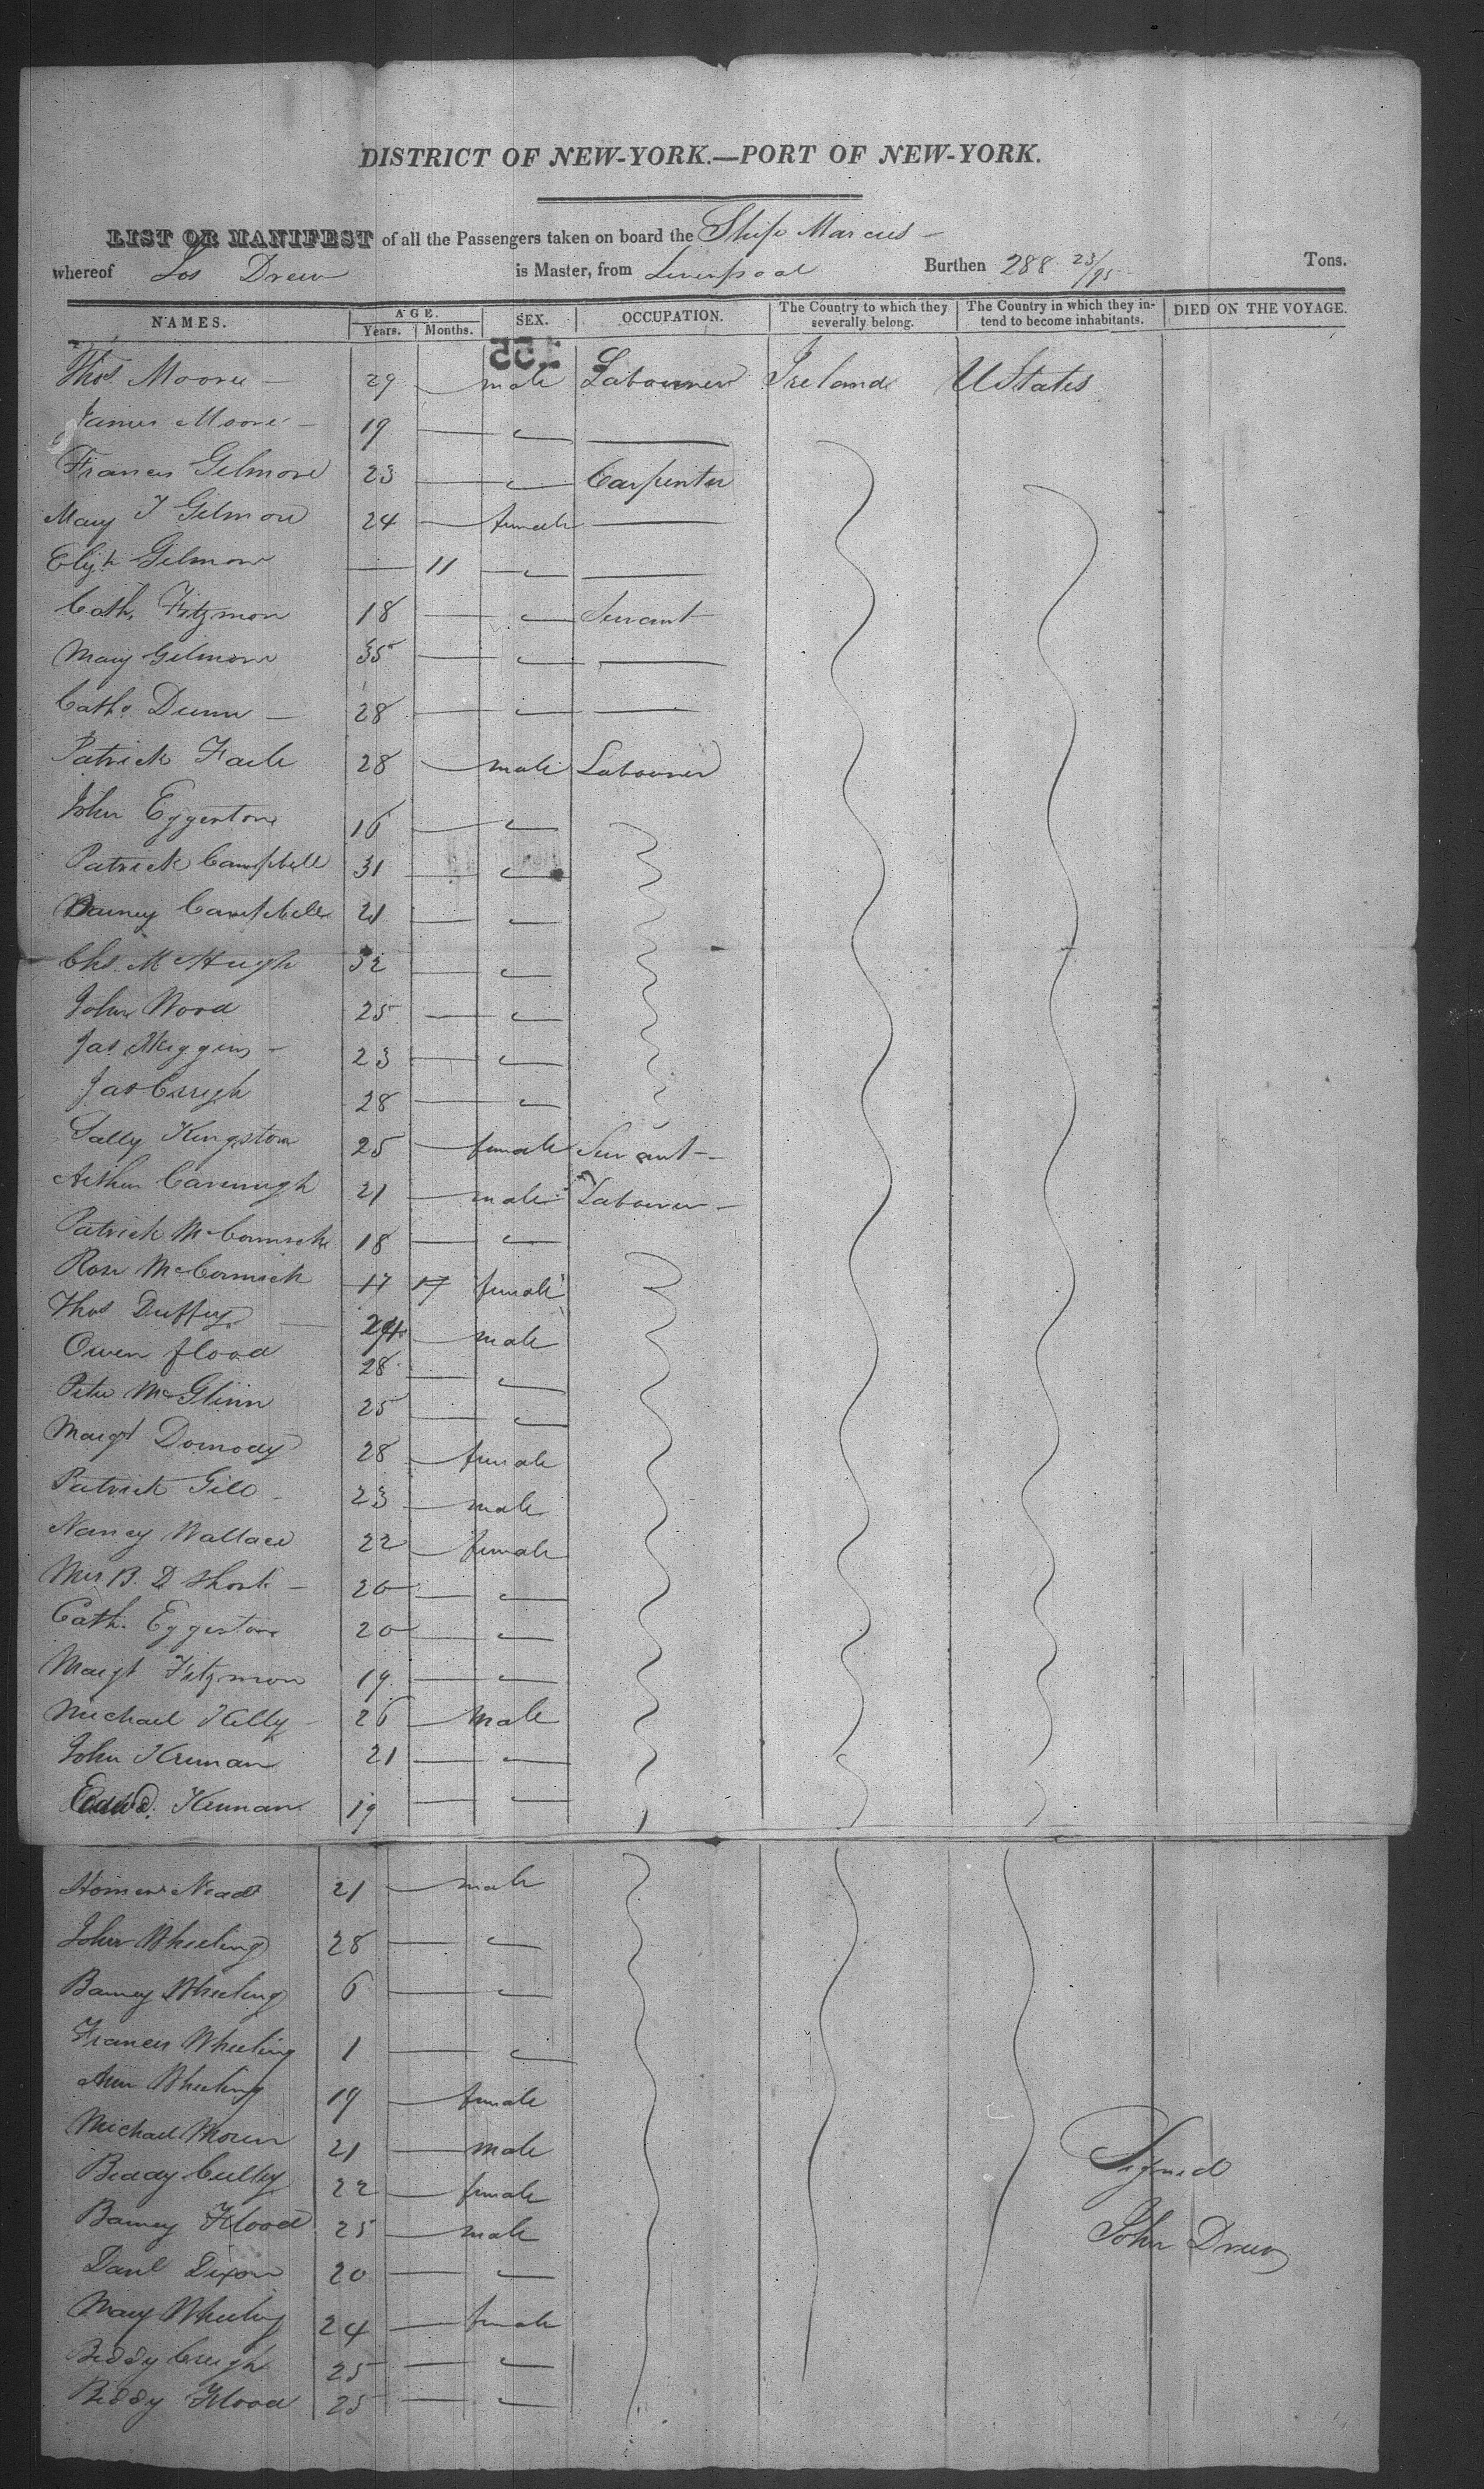 DISTRICT OF NEW-YORK.—PORT OF NEW-YORK.
LIST OR MANIFEST of all the Passengers taken on board the Ship Marcus —
whereof Jos Drew is Master, from Liverpool Burthen 288 23/95 Tons.
NAMES. AGE. Years. Months. SEX. OCCUPATION. The Country to which they severally belong. The Country in which they intend to become inhabitants. DIED ON THE VOYAGE.
155
Thos Moore — 29 — male Labourer Ireland U States
James Moore — 19 — " —
Francis Gilmore 23 — " Carpenter
Mary J Gilmore 24 — female —
Elizh Gilmore — 11 — " —
Cath. Fitzmon 18 — " Servant
Mary Gilmore 35 — " —
Cath. Dunn — 28 — " —
Patrick 28 — male Labourer
John Eggerton 16 — "
Patrick Campbell 31 — "
Barney Campbell 21 — "
Chs. McHugh 32 — "
John Wood 25 — "
Jas Higgins — 23 — "
Jas Creigh 28 — "
Sally Kingston 25 — female Servant —
Arthur Cavenugh 21 — male Labourer —
Patrick McCormick 18 — "
Rose McCormick 17 17 female
Thos Duffey — 24 — male
Owen flood 28 — "
Peter McGlinn 25 — "
Margt Domody 28 — female
Patrick Gill — 23 — male
Nancy Wallace 22 — female
Mrs B. D Short — 20 — "
Cath. Eggerton 20 — "
Margt Fitzmon 19 — "
Michael Kelly — 26 — male
John Kernan 21 — "
Edwd. Kernan 19 — "
Nead 21 — male
John Wheeling 28 — "
Barney Wheeling 6 — "
Francis Wheeling 1 — "
Ann Wheeling 19 — female
Michael Moren 21 — male
Biddy Culley 22 — female
Barney Flood 25 — male
Danl Dixon 20 — "
Mary Wheeling 24 — female
Biddy Creigh 25 — "
Biddy Flood 25 — "
Signed
John Drew